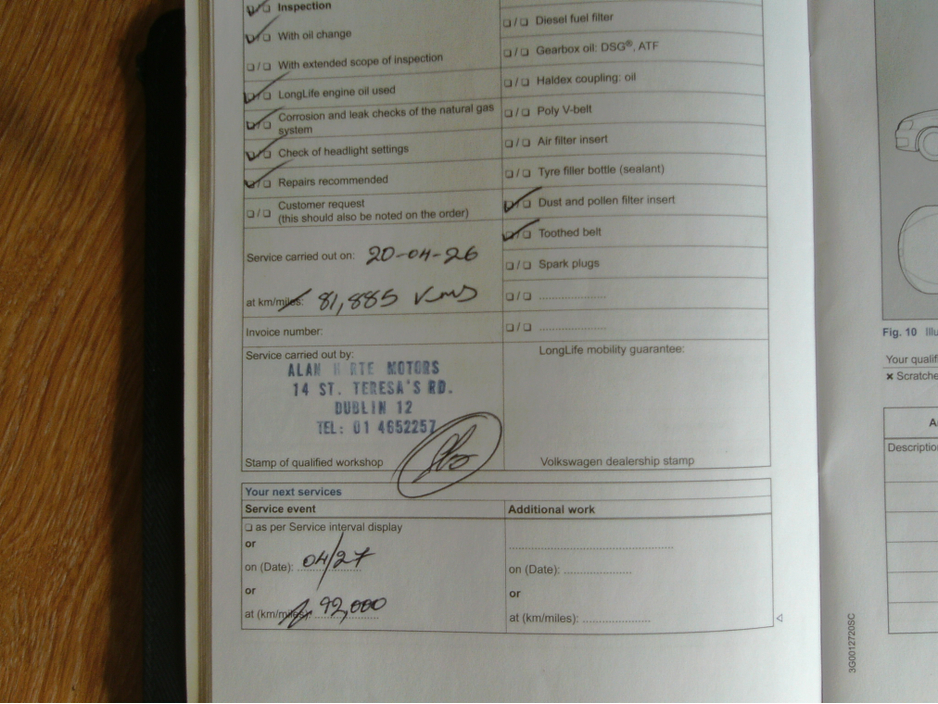 Inspection
With oil change
With extended scope of inspection
LongLife engine oil used
Corrosion and leak checks of the natural gas
system
Check of headlight settings
Repairs recommended
Customer request
(this should also be noted on the order)
Service carried out on: 20-04-26
at km/miles: 81,885 kms
Invoice number:
Service carried out by:
ALAN H RTE MOTORS
14 ST. TERESA'S RD.
DUBLIN 12
TEL: 01 4652257
Stamp of qualified workshop
Diesel fuel filter
Gearbox oil: DSG®, ATF
Haldex coupling: oil
Poly V-belt
Air filter insert
Tyre filler bottle (sealant)
Dust and pollen filter insert
Toothed belt
Spark plugs
LongLife mobility guarantee:
Volkswagen dealership stamp
Your next services
Service event
as per Service interval display
or
on (Date): 04/27
or
at (km/miles): 92,000
Additional work
on (Date):
or
at (km/miles):
3G0012720SC
Fig. 10 Illu
Your qualif
× Scratche
A
Description